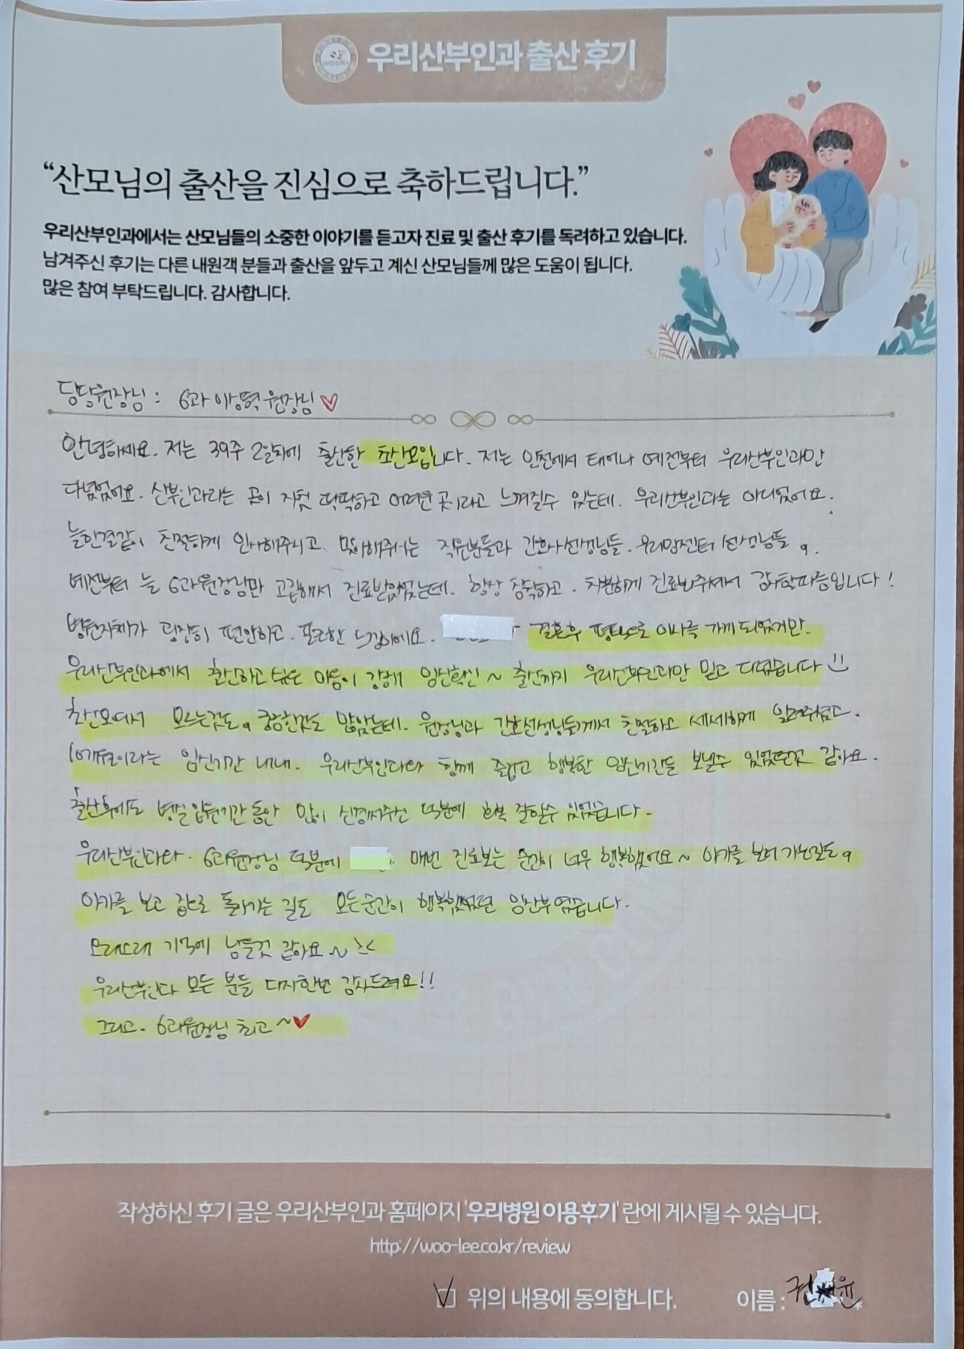 우리산부인과 출산 후기
“산모님의 출산을 진심으로 축하드립니다.”
우리산부인과에서는 산모님들의 소중한 이야기를 듣고자 진료 및 출산 후기를 독려하고 있습니다.
남겨주신 후기는 다른 내원객 분들과 출산을 앞두고 계신 산모님들께 많은 도움이 됩니다.
많은 참여 부탁드립니다. 감사합니다.
담당원장님 : 6과 원장님♥
안녕하세요. 저는 39주 2일차에 출산한 초산모입니다. 저는 인천에서 태어나 예전부터 우리산부인과만
다녔었어요. 산부인과라는 곳이 자칫 딱딱하고 어려운 곳이라고 느껴질수 있는데. 우리산부인과는 아니었어요.
늘한결같이 친절하게 인사해주시고. 맞이해주시는 직원분들과 간호사선생님들.
예전부터 늘 6과원장님만 고집해서 진료받았었는데. 항상 침착하고. 차분하게 진료봐주셔서 감사할따름입니다!
병원자체가 굉장히 편안하고. 포근한 느낌이에요. 결혼후 평택으로 이사를 가게되었지만.
우리산부인과에서 출산하고싶은 마음이 강해서 임신확인~출산까지 우리산부인과만 믿고 다녔습니다
초산모여서 모르는것도, 궁금한것도 많았는데. 원장님과 간호선생님들께서 친절하고 세세하게 알려주셨고.
10개월이라는 임신기간 내내. 우리산부인과와 함께 즐겁고 행복한 임신기간을 보낼수 있었던것 같아요.
출산후에도 병실입원기간동안 많이 신경써주신 덕분에 회복 잘할수 있었습니다.
우리산부인과와. 6과원장님 덕분에 매번 진료보는 순간이 너무 행복했어요~ 아가를 보러 가는길도,
아가를 보고 집으로 돌아가는 길도 모든순간이 행복했었던 임산부였습니다.
오래오래 기억에 남을것 같아요~
우리산부인과 모든 분들 다시한번 감사드려요!!
그리고. 6과원장님 최고~♥
작성하신 후기 글은 우리산부인과 홈페이지 '우리병원 이용후기' 란에 게시될 수 있습니다.
http://woo-lee.co.kr/review
위의 내용에 동의합니다. 이름 : 권 윤